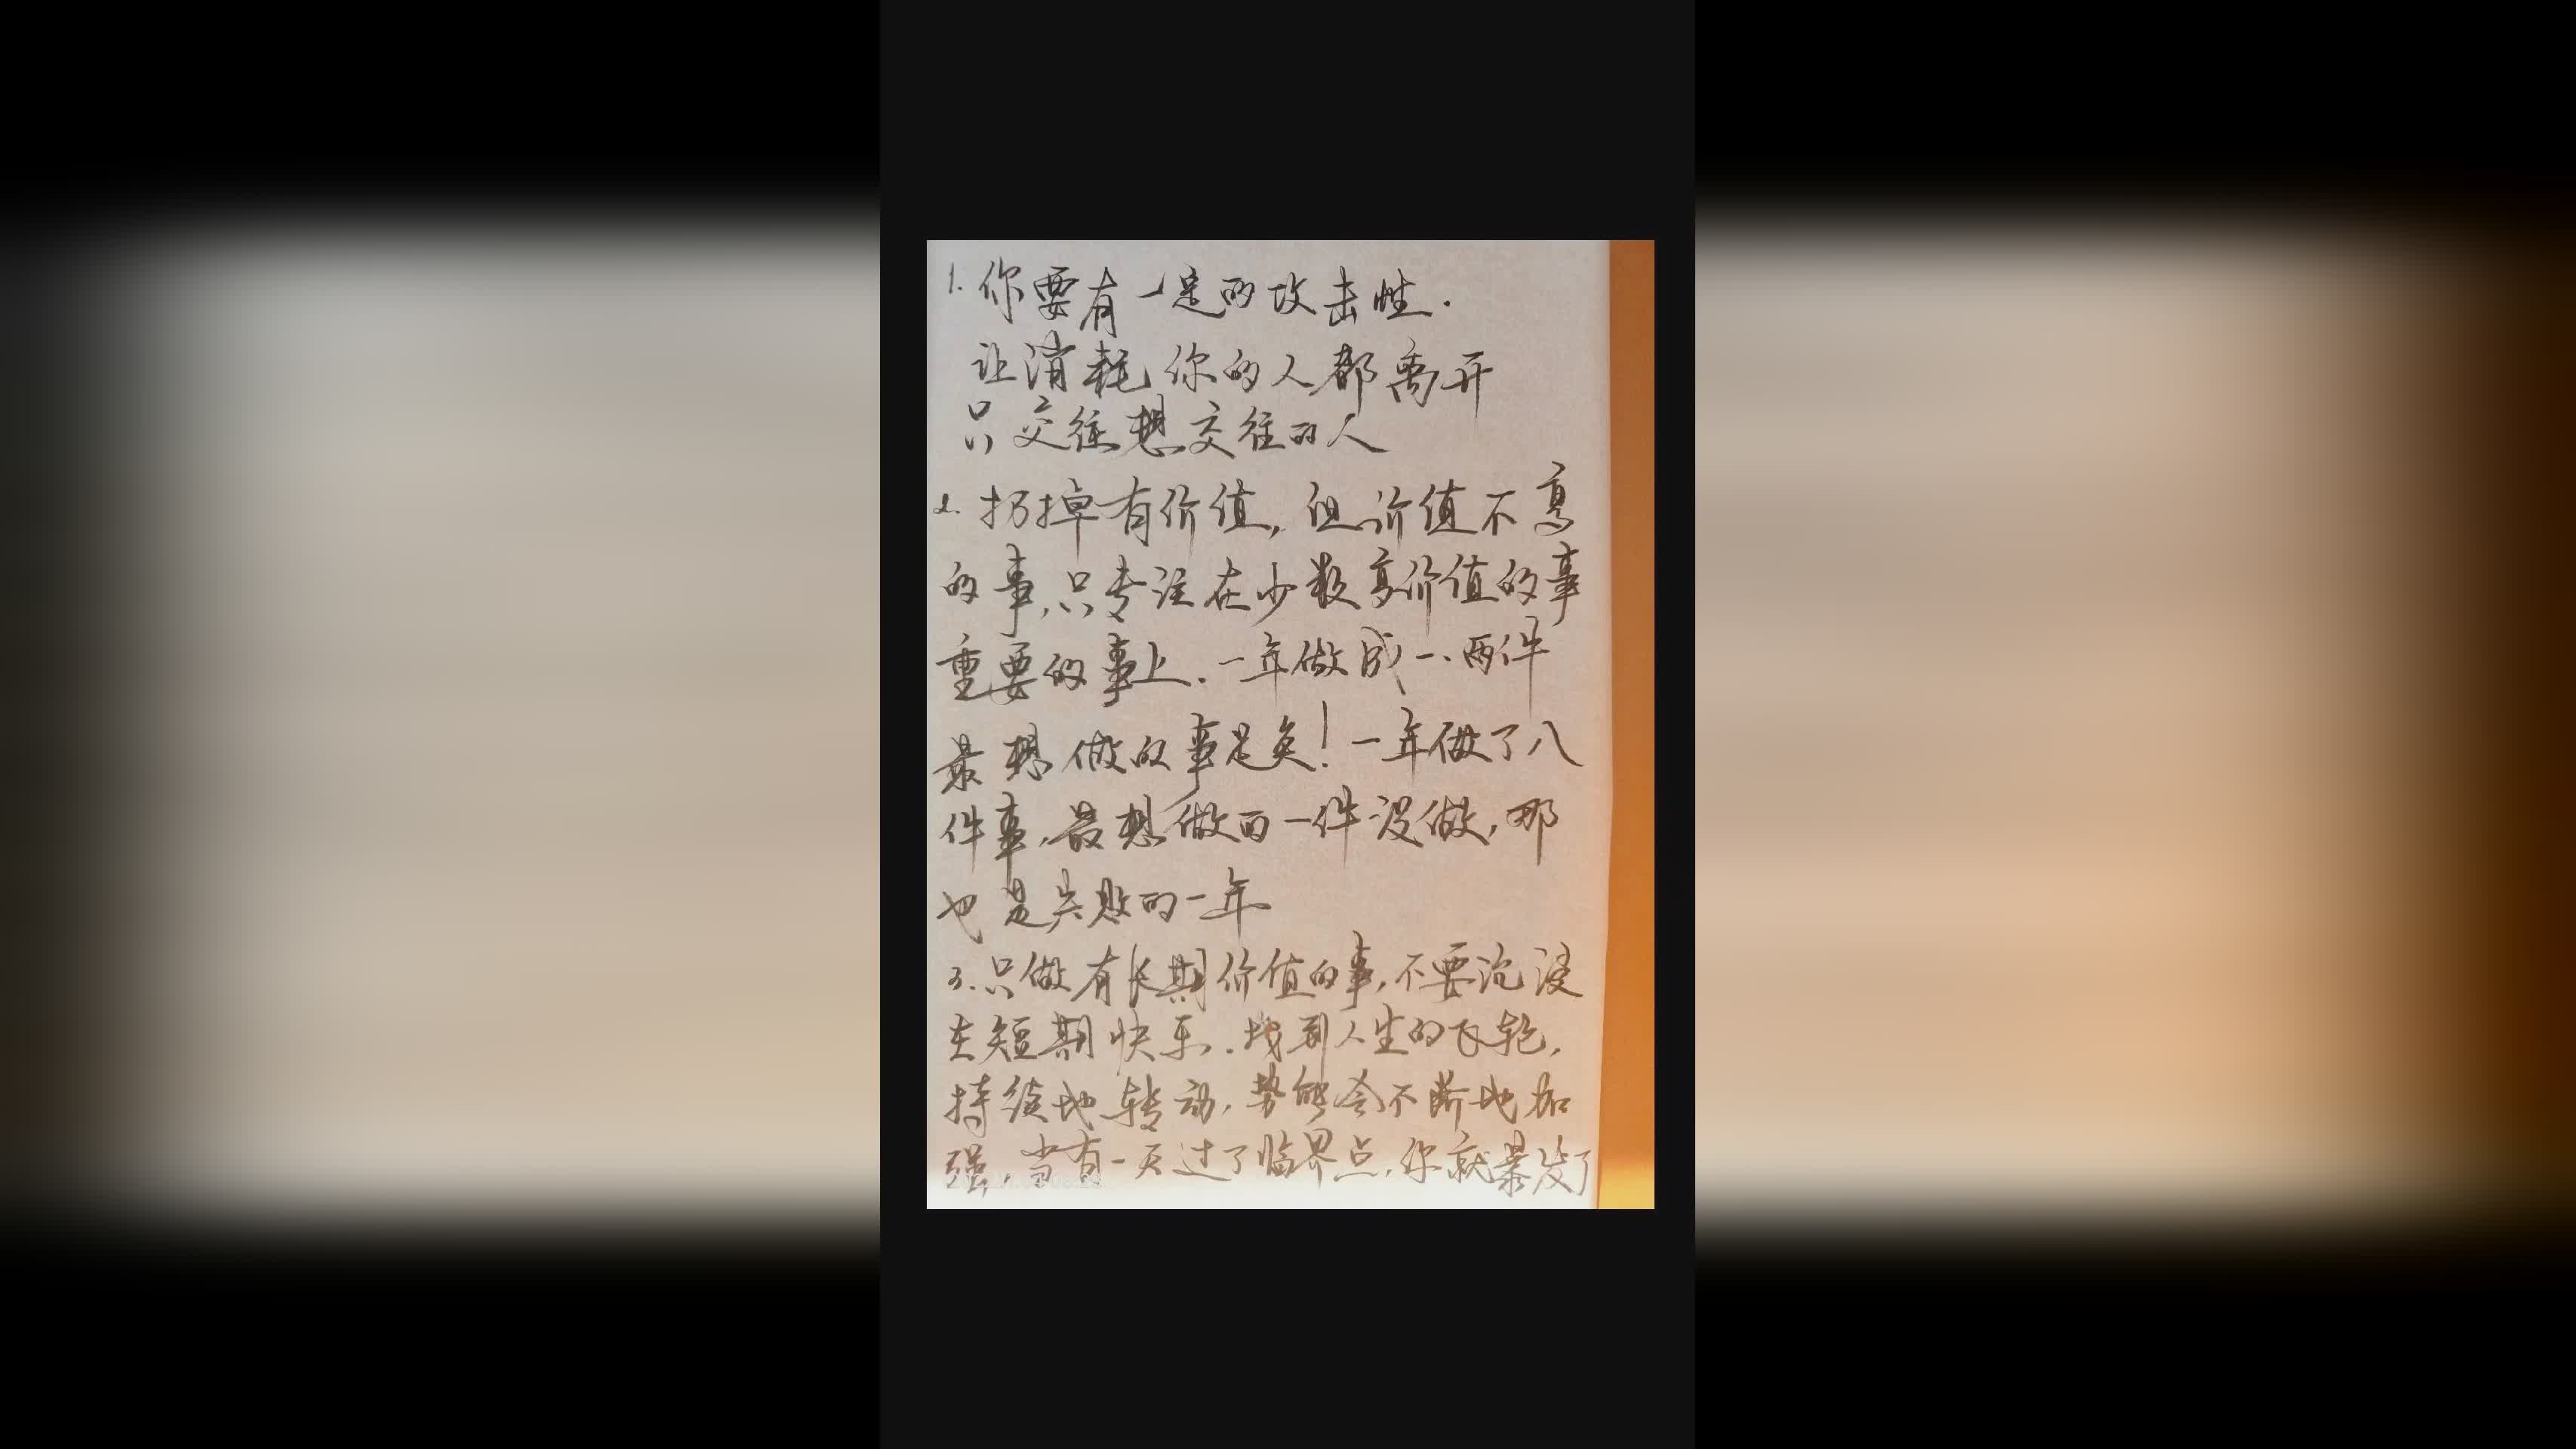 1. 你要有一定的攻击性.
让消耗你的人都离开
只交往想交往的人
2. 扔掉有价值, 但价值不高
的事,只专注在少数高价值的事
重要的事上.一年做成一、两件
最想做的事足矣!一年做了八
件事,最想做的一件没做,那
也是失败的一年
3.只做有长期价值的事,不要沉浸
在短期快乐.找到人生的飞轮,
持续地转动,势能会不断地加
强,当有一天过了临界点,你就暴发了